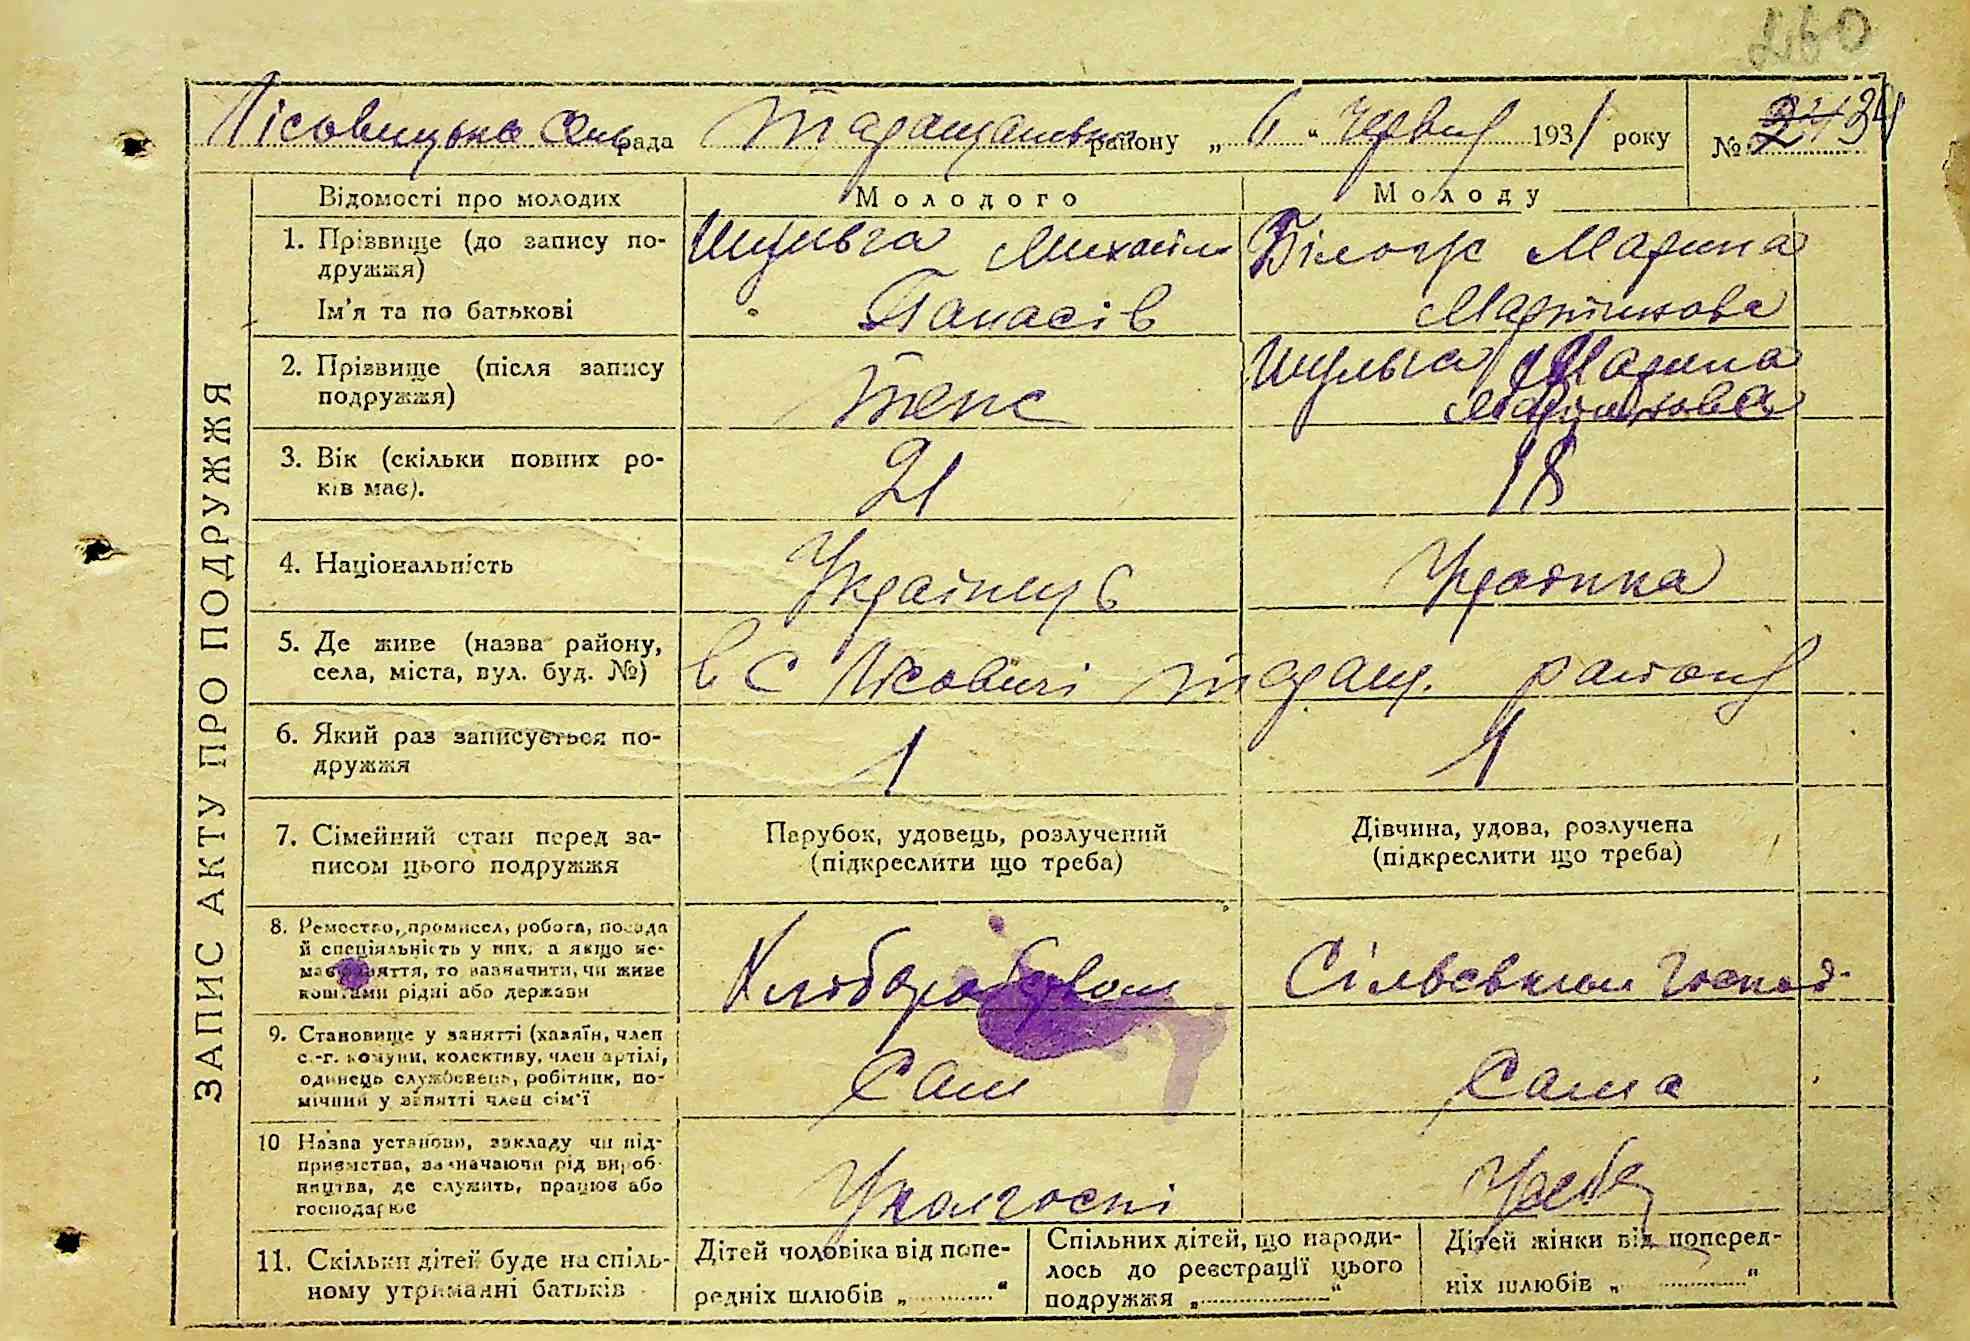 260
Лісовицька Сіль рада Таращанського району „ 6 “ Червня 1931 року № 34
Відомості про молодих
Молодого
Молоду
ЗАПИС АКТУ ПРО ПОДРУЖЖЯ
1. Прізвище (до запису по-
дружжя)
Ім'я та по батькові
Шульга Михайло
Панасів
Білоус Марина
Мартинова
2. Прізвище (після запису
подружжя)
теж
Шульга Марина
Мартинова
3. Вік (скільки повних ро-
ків має).
21
18
4. Національність
Українець
Українка
5. Де живе (назва району,
села, міста, вул. буд. №)
в с Лісовичі Таращ. району
6. Який раз записується по-
дружжя
1
1
7. Сімейний стан перед за-
писом цього подружжя
Парубок, удовець, розлучений
(підкреслити що треба)
Дівчина, удова, розлучена
(підкреслити що треба)
8. Ремество, промисел, робота, посада
й спеціяльність у них, а якщо не-
має заняття, то зазначити, чи живе
коштами рідні або держави
Хліборобством
Сільським Господ-
9. Становище у занятті (хазяїн, член
с.-г. комуни, колективу, член артілі,
одинець службовець, робітник, по-
мічний у занятті член сім'ї
Сам
Сама
10 Назва установи, закладу чи під-
приємства, зазначаючи рід вироб-
ництва, де служить, працює або
господарює
У колгоспі
У себе
11. Скільки дітей буде на спіль-
ному утриманні батьків
Дітей чоловіка від попе-
редніх шлюбів „ “
Спільних дітей, що народи-
лось до реєстрації цього
подружжя „ “
Дітей жінки від поперед-
ніх шлюбів „ “